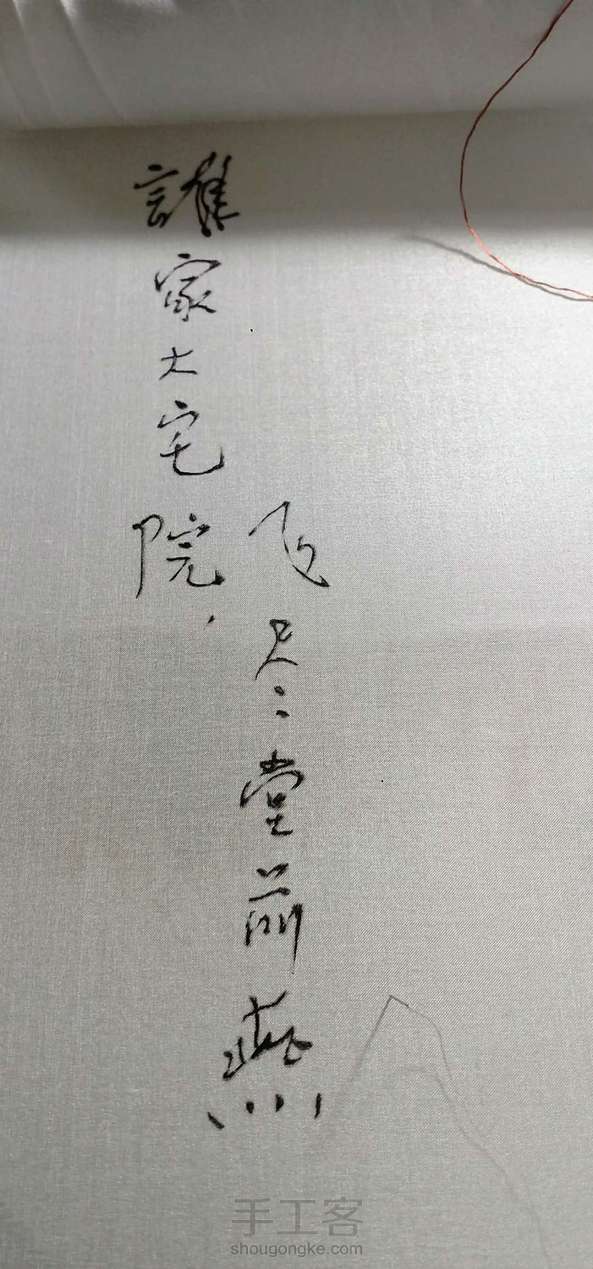 誰家大宅院，
飞尽堂前燕
手工客
shougongke.com